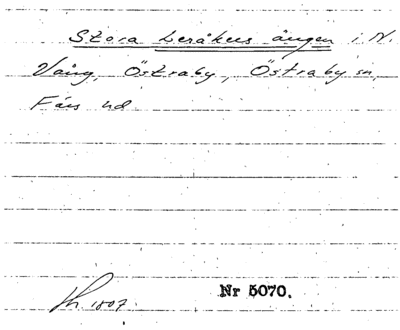 Stora Leråkers ängen i N.
Vång, Östraby, Östraby sn,
Färs hd
1807.
Nr 5070.